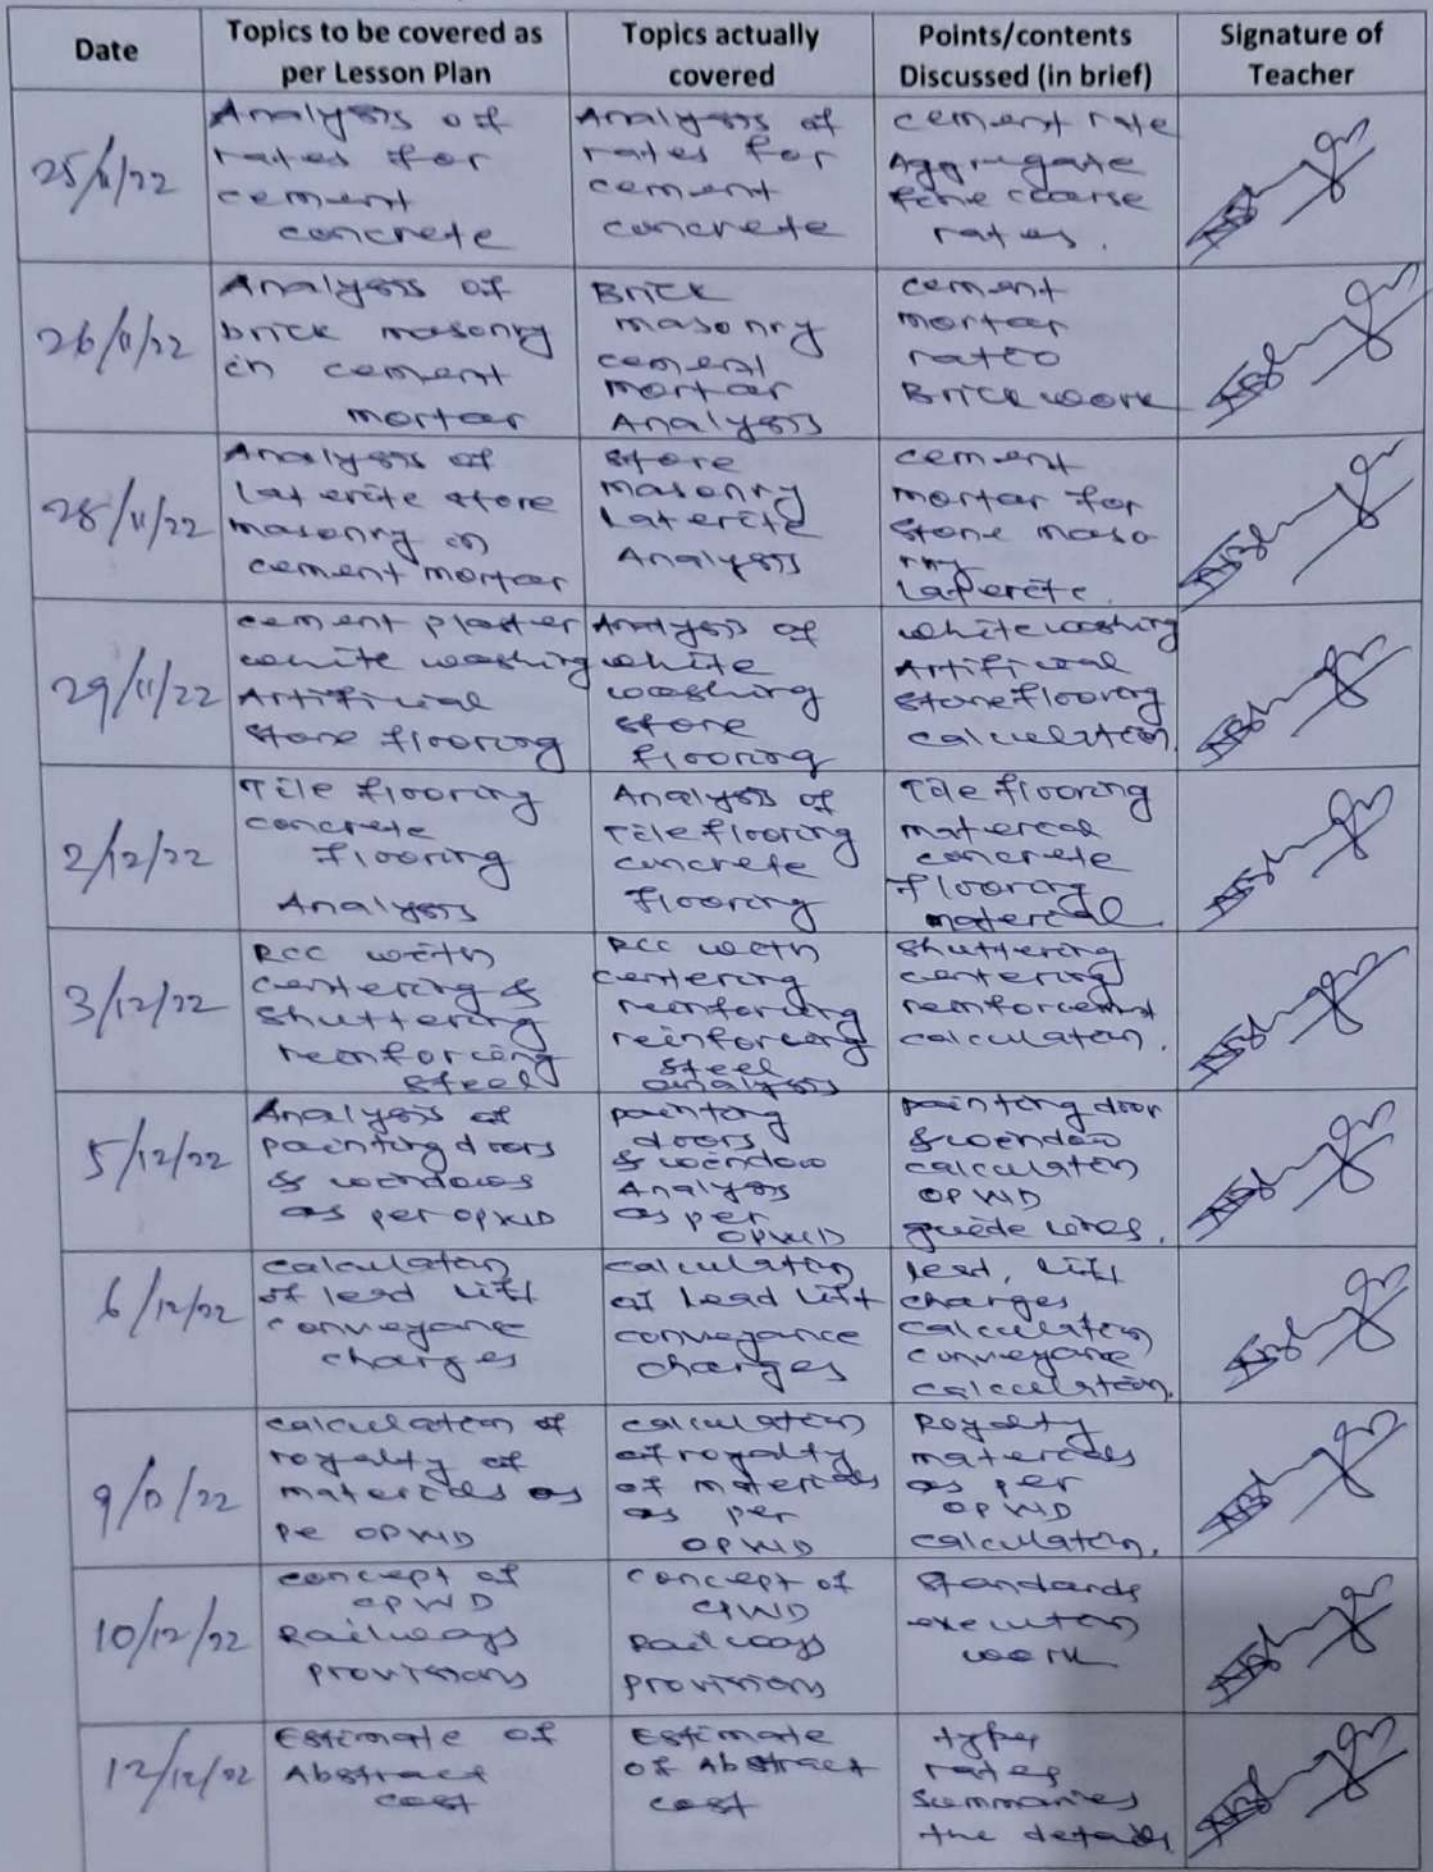 Date
Topics to be covered as
per Lesson Plan
Topics actually
covered
Points/contents
Discussed (in brief)
Signature of
Teacher
25/11/22
Analysis of
rates for
cement
concrete
Analysis of
rates for
cement
concrete
cement rate
Aggregate
fine coarse
rates.
26/11/22
Analysis of
brick masonry
in cement
mortar
Brick
masonry
cement
mortar
Analysis
cement
mortar
ratio
Brick work
28/11/22
Analysis of
laterite stone
masonry in
cement mortar
stone
masonry
Laterite
Analysis
cement
mortar for
stone maso
nry
Laterite.
29/11/22
cement plaster
white washing
Artificial
stone flooring
Analysis of
white
washing
stone
flooring
white washing
Artificial
stone flooring
calculation.
2/12/22
Tile flooring
concrete
flooring
Analysis
Analysis of
Tile flooring
concrete
flooring
Tile flooring
material
concrete
flooring
material.
3/12/22
RCC with
centering &
shuttering
reinforcing
steel
RCC with
centering
reinforcing
reinforcing
steel
analysis
shuttering
centering
reinforcement
calculation.
5/12/22
Analysis of
painting doors
& windows
as per OPWD
painting
doors
& window
Analysis
as per
OPWD
painting door
& window
calculation
OPWD
guide lines.
6/12/22
calculation
of lead lift
conveyance
charges
calculation
of lead lift
conveyance
charges
lead, lift
charges
calculation
conveyance
calculation.
9/12/22
calculation of
royalty of
materials as
pe OPWD
calculation
of royalty
of materials
as per
OPWD
Royalty
materials
as per
OPWD
calculation.
10/12/22
concept of
CPWD
Railways
provisions
concept of
CPWD
Railways
provisions
standards
execution
work
12/12/22
Estimate of
Abstract
cost
Estimate
of Abstract
cost
type
rates
summaries
the details